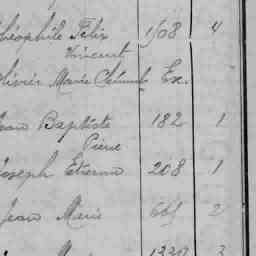 Théophile Felix 1508 4
Vincent
Olivier Marie Ex.
Jean Baptiste 182 1
Pierre
Joseph Etienne 208 1
Jean Marie 665 2
1330 3